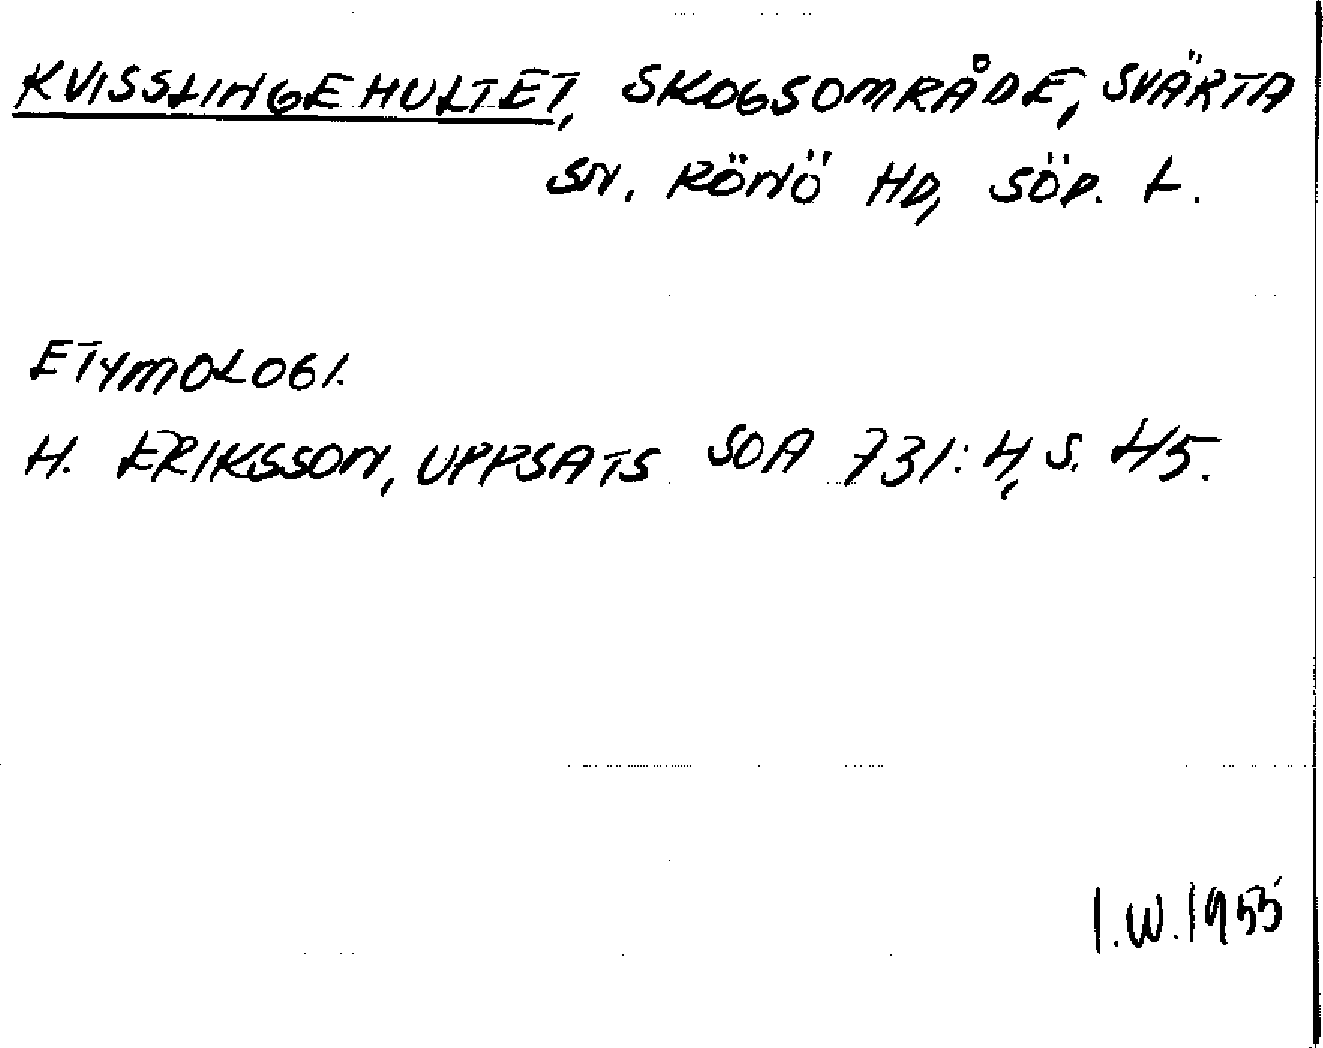 KVISSLINGEHULTET, SKOGSOMRÅDE, SVÄRTA
SN. RÖNÖ HD, SÖD. L.
ETYMOLOGI.
H. ERIKSSON, UPPSATS SOA 731:4, S. 45.
I.W. 1955